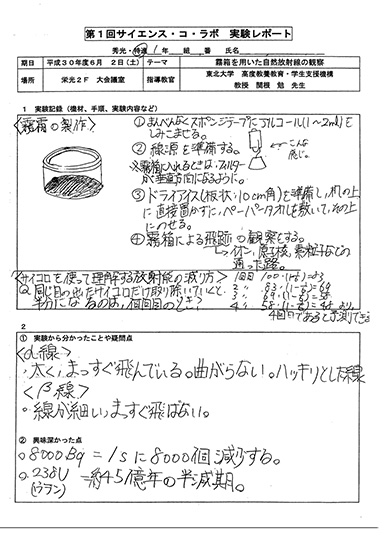 第1回サイエンス・コ・ラボ 実験レポート
秀光・特進 1年 組 番 氏名
期日 平成30年度6月2日(土) テーマ 霧箱を用いた自然放射線の観察
場所 栄光2F 大会議室 指導教官 東北大学 高度教養教育・学生支援機構
教授 関根 勉 先生
1 実験記録(機材、手順、実験内容など)
<霧箱の製作>
①まんべんなくスポンジテープにアルコール(1~2ml)を
しみこませる。
②線源を準備する。
こんな
感じ。
※霧箱に入れるときは、フィルター
が垂直方向になるように。
③ドライアイス(板状:10cm角)を準備し、机の上
に直接置かずに、ペーパータオルを敷いて、その上
にのせる。
④霧箱による飛跡の観察をする。
イオン、原子核、素粒子などの
通った路。
<サイコロを使って理解する放射能の減り方>
Q 同じ目の出たサイコロだけ取り除いていくと、
半分になるのは、何回目のとき?
1回目 100・(1-1/6)=83
2〃 83・(1-1/6)=69
3〃 69・(1-1/6)=58
4〃 58・(1-1/6)=48 より、
4回目であると予測できる
2
① 実験から分かったことや疑問点
<α線>
・太く、まっすぐ飛んでいる。曲がらない。ハッキリとした線
<β線>
・線が細い、まっすぐ飛ばない。
② 興味深かった点
○8000Bq=1sに8000個減少する。
○238U =約45億年の半減期。
(ウラン)